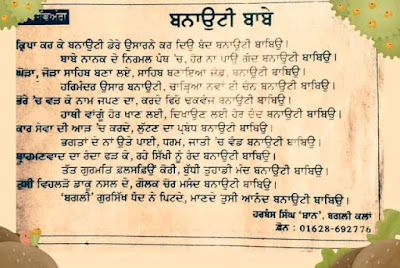 ਬਨਾਉਟੀ ਬਾਬੇ
ਕ੍ਰਿਪਾ ਕਰ ਕੇ ਬਨਾਉਟੀ ਡੇਰੇ ਉਸਾਰਨੇ ਕਰ ਦਿਉ ਬੰਦ ਬਨਾਉਟੀ ਬਾਬਿਉ।
ਬਾਬੇ ਨਾਨਕ ਦੇ ਨਿਰਮਲ ਪੰਥ 'ਚ, ਹੋਰ ਨਾ ਪਾਉ ਗੰਦ ਬਨਾਉਟੀ ਬਾਬਿਉ।
ਘੋੜਾ, ਜੋੜਾ ਸਾਹਿਬ ਬਣਾ ਲਏ, ਸਾਹਿਬ ਬਣਾਇਆ ਜੰਡ, ਬਨਾਉਟੀ ਬਾਬਿਉ।
ਹਰਿਮੰਦਰ ਉਸਾਰ ਬਨਾਉਟੀ, ਚਾੜ੍ਹਿਆ ਨਵਾਂ ਈ ਚੰਨ ਬਨਾਉਟੀ ਬਾਬਿਉ।
ਭੋਰੇ 'ਚ ਵੜ ਕੇ ਨਾਮ ਜਪਣ ਦਾ, ਕਰਦੇ ਫਿਰੋ ਢਕਵੰਜ ਬਨਾਉਟੀ ਬਾਬਿਉ।
ਹਾਥੀ ਵਾਂਗੂੰ ਹੋਰ ਖਾਣ ਲਈ, ਦਿਖਾਉਣ ਲਈ ਹੋਰ ਦੰਦ ਬਨਾਉਟੀ ਬਾਬਿਉ।
ਕਾਰ ਸੇਵਾ ਦੀ ਆੜ 'ਚ ਕਰਦੇ, ਲੁੱਟਣ ਦਾ ਪ੍ਰਬੰਧ ਬਨਾਉਟੀ ਬਾਬਿਉ।
ਭਗਤਾਂ ਦੇ ਨਾਂ ਉਤੇ ਪਾਈ, ਧਰਮ, ਜਾਤੀ 'ਚ ਵੰਡ ਬਨਾਉਟੀ ਬਾਬਿਉ।
ਬ੍ਰਾਹਮਣਵਾਦ ਦਾ ਰੰਦਾ ਫੜ ਕੇ, ਰਹੇ ਸਿੱਖੀ ਨੂੰ ਰੰਦ ਬਨਾਉਟੀ ਬਾਬਿਉ।
ਤੱਤ ਗੁਰਮਤਿ ਫ਼ਲਸਫ਼ਿਉਂ ਕੋਰੀ, ਬੁੱਧੀ ਤੁਹਾਡੀ ਮੰਦ ਬਨਾਉਟੀ ਬਾਬਿਉ।
ਤੁਸੀ ਵਿਹਲੜ ਡਾਕੂ ਨਸਲ ਦੇ, ਗੋਲਕ ਚੋਰ ਮਸੰਦ ਬਨਾਉਟੀ ਬਾਬਿਉ।
'ਬਗਲੀ' ਗੁਰਸਿੱਖ ਧੰਦ ਨੇ ਪਿਟਦੇ, ਮਾਣਦੇ ਤੁਸੀ ਆਨੰਦ ਬਨਾਉਟੀ ਬਾਬਿਉ।
ਹਰਬੰਸ ਸਿੰਘ 'ਸ਼ਾਨ', ਬਗਲੀ ਕਲਾਂ
ਫ਼ੋਨ : 01628-692776